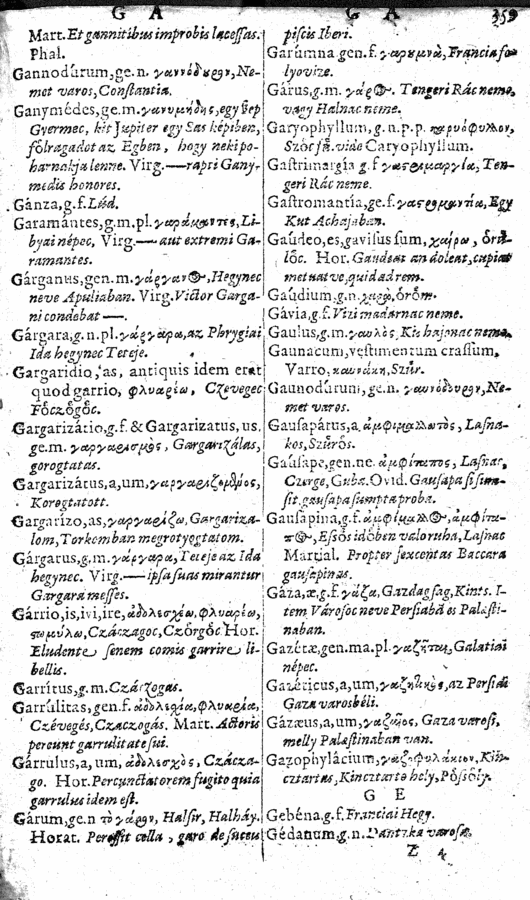 G A
Mart. Et gannitibus improbis lacessas.
Phal.
Gannodúrum, ge. n. γαννόδυρον, Ne-
met varos, Constantia.
Ganymédes, ge. m. γανυμήδης, egy szep
Gyermec, kit Jupiter egy Sas képiben,
fölragadot az Egben, hogy neki po-
harnakja lenne. Virg. — rapti Gany-
medis honores.
Gánza, g. f. Lúd.
Garamántes, g. m. pl. γαράμαντες, Li-
byai népec, Virg. — aut extremi Ga-
ramantes.
Gárganus, gen. m. γάργανος, Hegynec
neve Apuliaban. Virg. Victor Garga-
ni condebat —.
Gárgara, g. n. pl. γάργαρα, az Phrygiai
Ida hegynec Tereje.
Gargaridio, as, antiquis idem erat
quod garrio, φλυαρίω, Czevegec
Főczőgőc.
Gargarizátio, g. f. & Gargarizatus, us.
ge. m. γαργαρισμὸς, Gargarizálas,
gorogtatas.
Gargarizátus, a, um, γαργαριζόμθμος,
Korogtatott.
Gargarízo, as, γαργαρίζω, Gargariza-
lom, Torkomban megrotyogtatom.
Gárgarus, g. m. γάργαρα, Teteje az Ida
hegynec. Virg. — ipsa suas mirantur
Gargara messes.
Gárrio, is, ivi, ire, ἀδολεσχίω, φλυαρίω,
Czáczagoc, Czőrgőc Hor.
Eludente senem comis garrire li-
bellis.
Garrítus, g. m. Czáczogas.
Garrúlitas, gen. f. ἀδολεσχία, φλυαρία,
Czévegés, Czaczogás. Mart. Actoris
percunt garrulitate sui.
Gárrulus, a, um, ἀδολεσχὸς, Czácza-
go. Hor. Percunctatorem fugito quia
garrulus idem est.
Gárum, ge. n τὸ γάρον, Halsir, Halháy.
Horat. Persit cella, garo de succu
G A 359
piscis Iberi.
Garúmna gen. f. γαρυμνὰ, Francia fo-
lyovize.
Gárus, g. m. γάρος. Tengeri Rác neme,
vagy Halnac neme.
Garyophyllum, g. n. p. p. καρυόφυλλον,
Szöcfü. vide Caryophyllum.
Gastrimargía g. f γαστριμαργία, Ten-
geri Rác neme.
Gastromantía, ge. f. γαστρομαντία, Egy
Kut Achajaban.
Gaúdeo, es, gavisus sum, χαίρω, őrü-
lőc. Hor. Gaudeat an doleat, cupiat
metuatve, quid ad rem.
Gaúdium, g. n. χαρὰ, őrőm.
Gávia, g. f. Vizi madarnac neme.
Gaulus, g. m. γαυλὸς, Kis hajonac neme.
Gaunacum, vestimentum crassum,
Varro, καυνάκη, Szür.
Gaunodúrum, ge. n. γαυνόδυρον, Ne-
met varos.
Gausapátus, a. ἀμφιμαλλωτὸς, Lasna-
kos, Szürős.
Gaúsape, gen. ne. ἀμφίταπος, Lasnac,
Czerge, Guba. Ovid. Gausapa si sum-
sit, gausapa sumpta proba.
Gaúsapina, g. f. ἀμφίμαλλος, ἀμφίτα-
πος, Esős időben valoruha, Lasnac
Martial. Propter sexcentas Baccara
gausapinas.
Gáza, æ. g. f. γάζα, Gazdagsag, Kints. I-
tem Városoc neve Persiabā es Palæsti-
naban.
Gazétæ, gen. ma. pl. γαζῆται, Galatiai
népec.
Gazéticus, a, um, γαζητικὸς, az Persidi
Gaza varosbéli.
Gázæus, a, um, γαζαῖος, Gaza varosi,
melly Palæstinaban van.
Gazophylácium, γαζοφυλάκιον, Kin-
cztartas, Kincztarto hely,
G E
Gebéna, g. f. Franciai Hegy.
Gédanum, g. n. Dantzka varosa.
Z 4